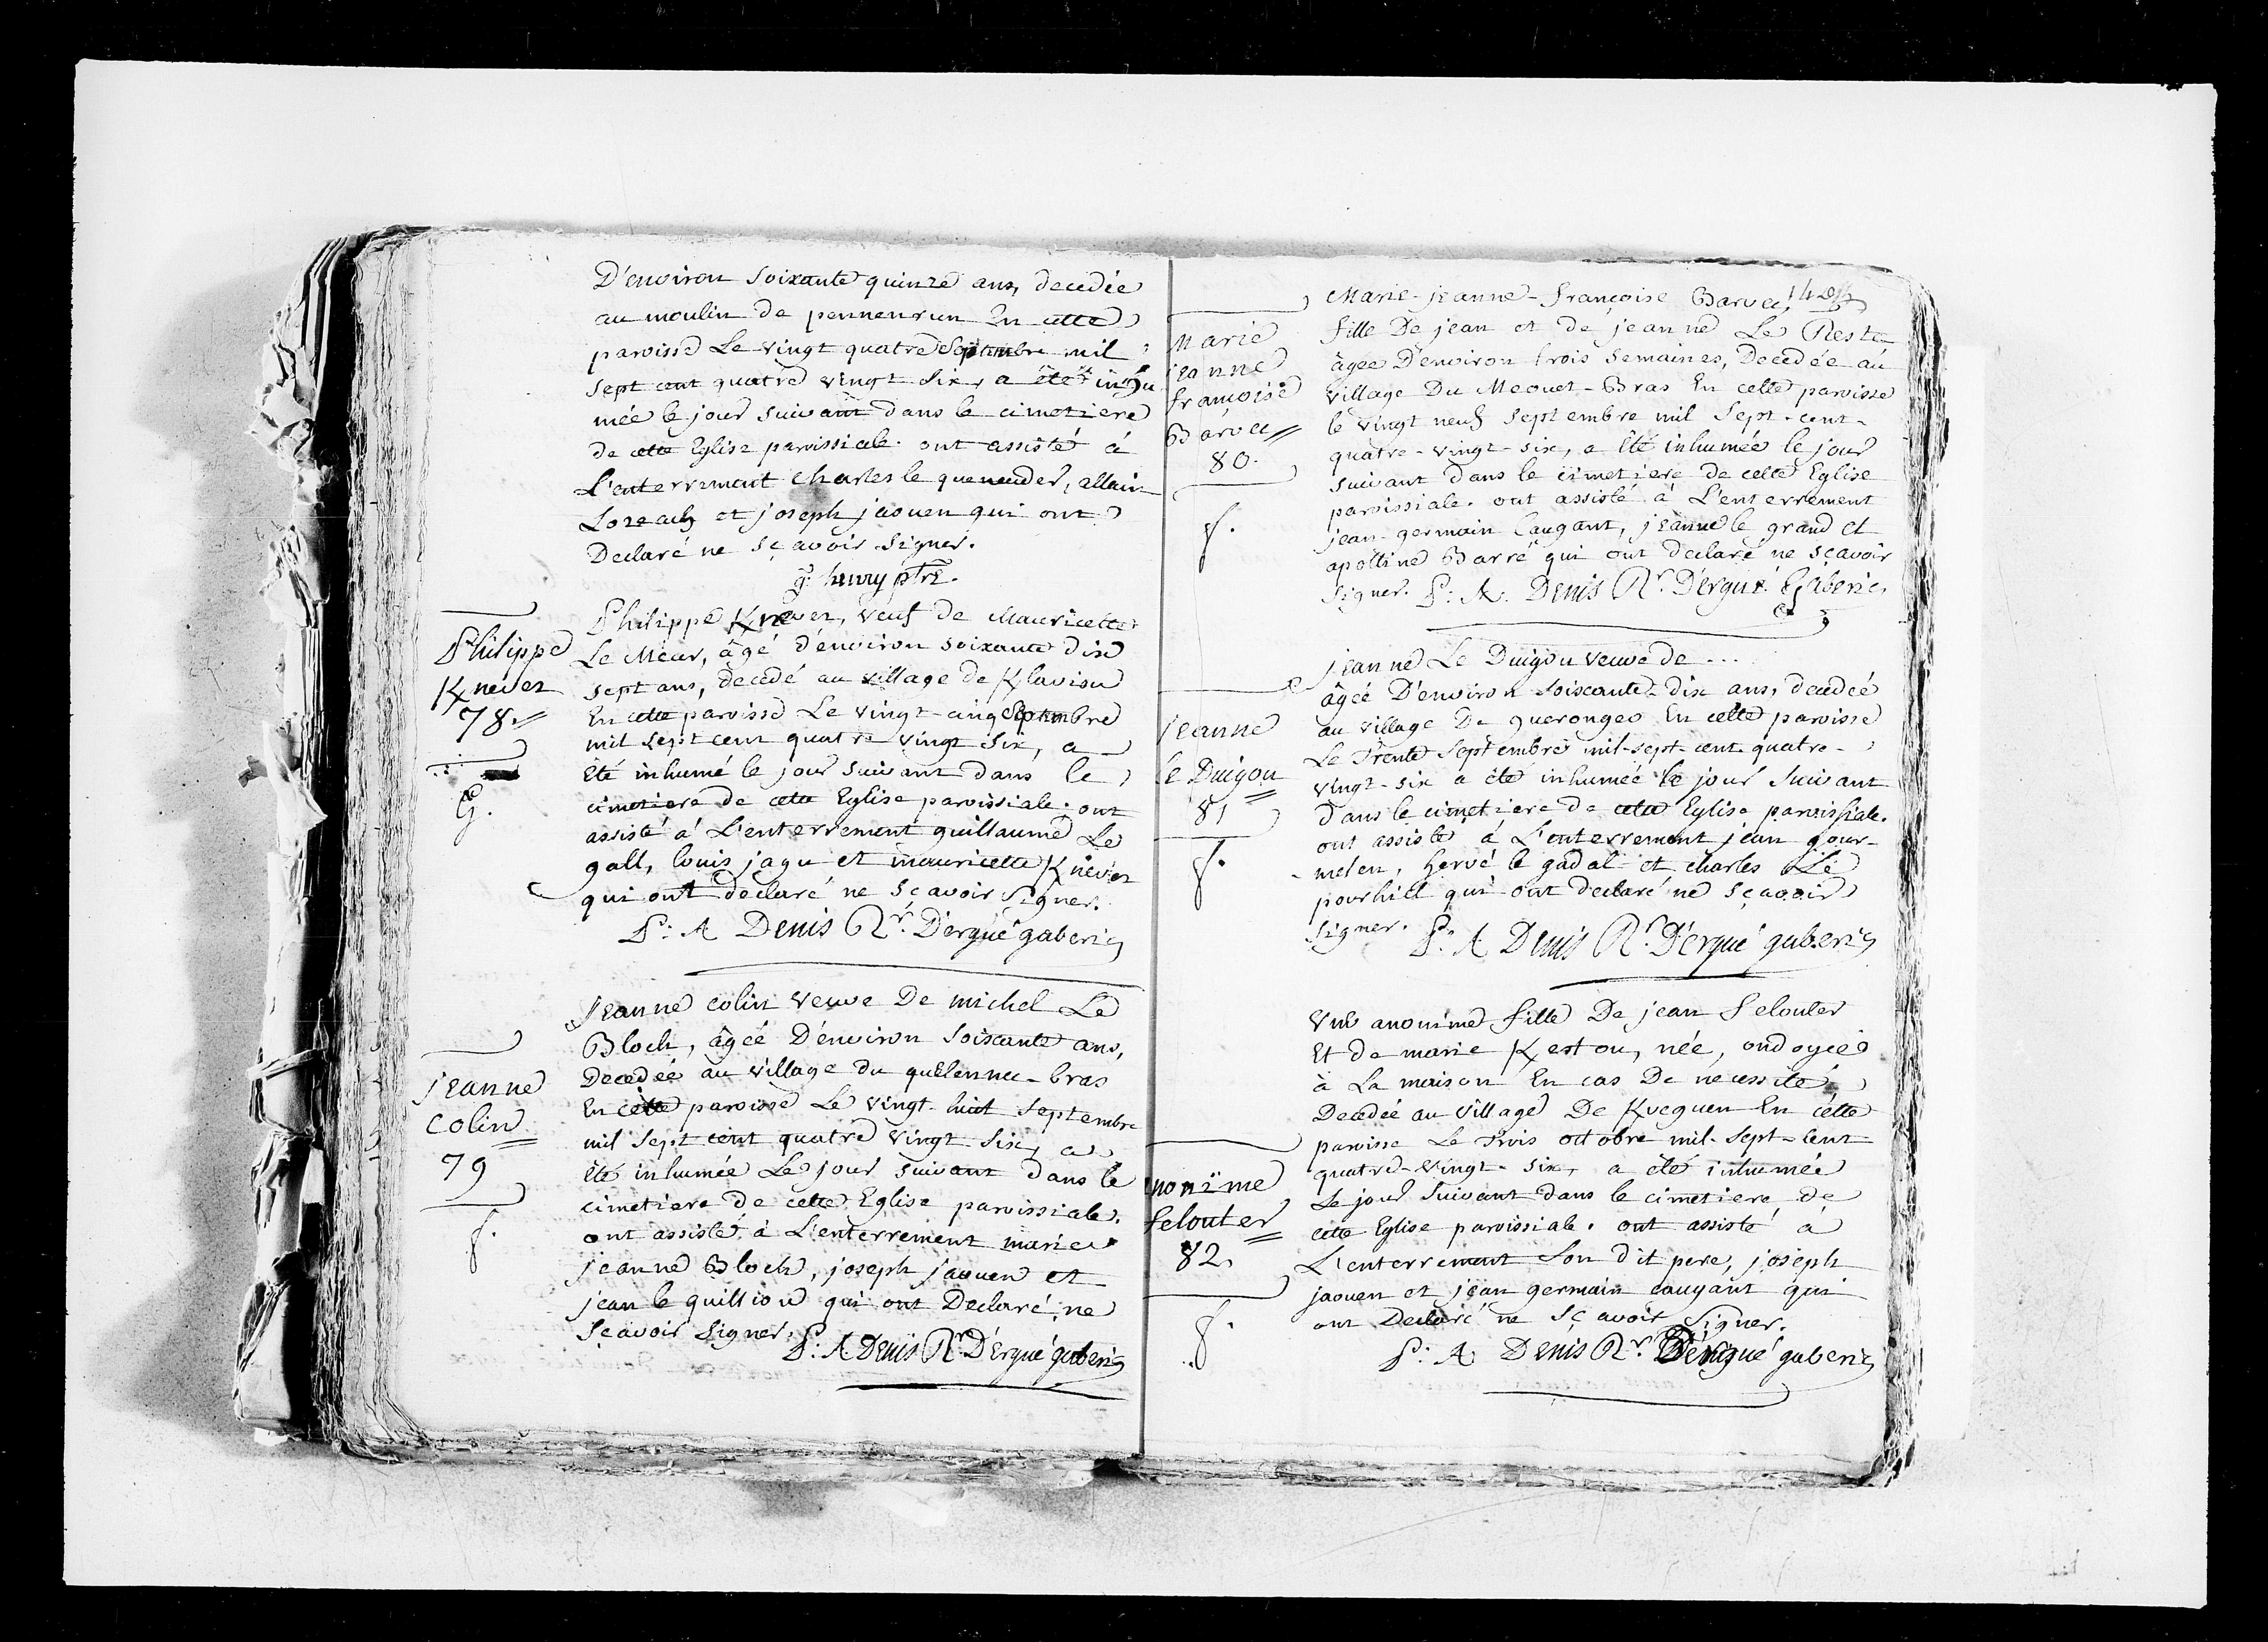 D'environ soixante quinze ans, decedée
au moulin de pennenrun En cette
paroisse Le vingt quatre Septembre mil
sept cent quatre vingt six, a été inhu
mée le jour suivant dans le cimetiere
de cette Eglise paroissiale. ont assisté à
L'enterrement charles le quemender, allain
Lozeach et joseph jaouen qui ont
Declaré ne sçavoir signer.
g. henry ptre.
Philippe
K/never
78.
G.
Philippe K/never, veuf de Mauricette
Le Meur, âgé d'environ soixante dix
sept ans, decedé au village de K/lavisu
En cette paroisse Le vingt-cinq Septembre
mil sept cent quatre vingt six, a
été inhumé le jour suivant dans le
cimetiere de cette Eglise paroissiale. ont
assisté à L'enterrement guillaume Le
gall, louis jagu et mauricette K/never
qui ont declaré ne sçavoir signer.
P: A Denis Rr. D'ergué gaberic
jeanne
colin
79
f.
Jeanne colin veuve De michel Le
Bloch, âgéé D'environ Soixante ans,
Decedéé au village du quelennec-bras
En cette paroisse Le vingt-huit septembre
mil sept cent quatre vingt six, a
été inhumée Le jour suivant dans le
cimetiere de cette Eglise paroissiale.
ont assisté à L'enterrement marie
jeanne Bloch, joseph jaouen et
jean le quilliou qui ont Declaré ne
sçavoir signer.
P: A Denis Rr D'Ergué gaberic
Marie
jeanne
françoise
Barvec
80.
f.
Marie-jeanne-françoise Barvec
fille De jean et de jeanne Le Reste
âgée D'environ trois semaines, Decedée au
village Du Meouet-Bras En cette paroisse
le vingt neuf septembre mil sept-cent-
quatre-vingt-six, a été inhumée le jour
suivant dans le cimetiere de cette Eglise
paroissiale. ont assisté à L'enterrement
jean-germain Caugant, jeanne le grand et
apolline Barré qui ont declaré ne sçavoir
signer. P: A. Denis Rr. D'ergué Gaberic
Jeanne
le Duigou
81
f.
Jeanne Le Duigou veuve de ...
âgéé D'environ soixante-dix ans, decedeé
au village De queronges En cette paroisse
Le Trente Septembre mil-sept-cent quatre-
vingt-six a été inhumée le jour suivant
Dans le cimetiere de cette Eglise paroissiale.
ont assisté à L'enterrement jean gour-
-melen, hervé le gadal et charles Le
pourhiet qui ont declaré ne sçavoir
signer. P: A Denis Rr. D'ergué gaberic
nonïme
felouter
82.
f.
Une anonime fille De jean Felouter
Et de marie K/estou, née, ondoyée
à La maison En cas De nécessité,
Decedéé au village De K/veguen En cette
paroisse Le Trois octobre mil-sept-cent
quatre-vingt-six, a été inhumée
Le jour suivant dans le cimetiere de
cette Eglise paroissiale. ont assisté à
L'enterrement Son dit pere, joseph
jaouen et jean germain caugant qui
ont Declaré ne sçavoir signer.
P: A Denis Rr. D'ergué gaberic